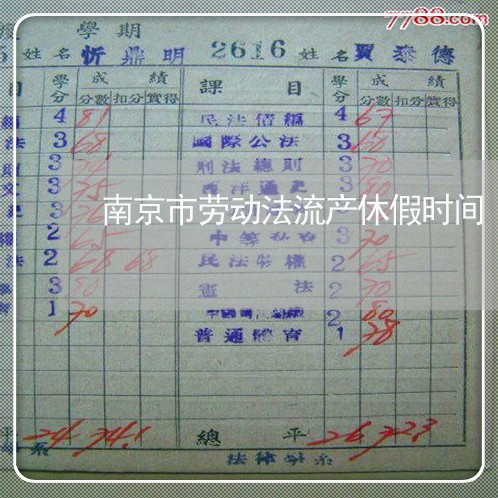 7788.com
學期
姓名 忻鼎明 2616 姓名 賈泰德
目 學分 成績 課目 學分 成績
分數 扣分 實得 分數 扣分 實得
4 81 民法債編 4 67
法 3 68 國際公法 3 60
3 刑法總則 3 70
3 75 西洋通史 3 80
南京市劳动法流产休假时间
2 65 3 70
法 2 68 68 民法物權 2 65
3 80 憲法 2 70
1 70 2 80
普通體育 1 78
平 24 74.1 總平 26 72.3
系 法律學系